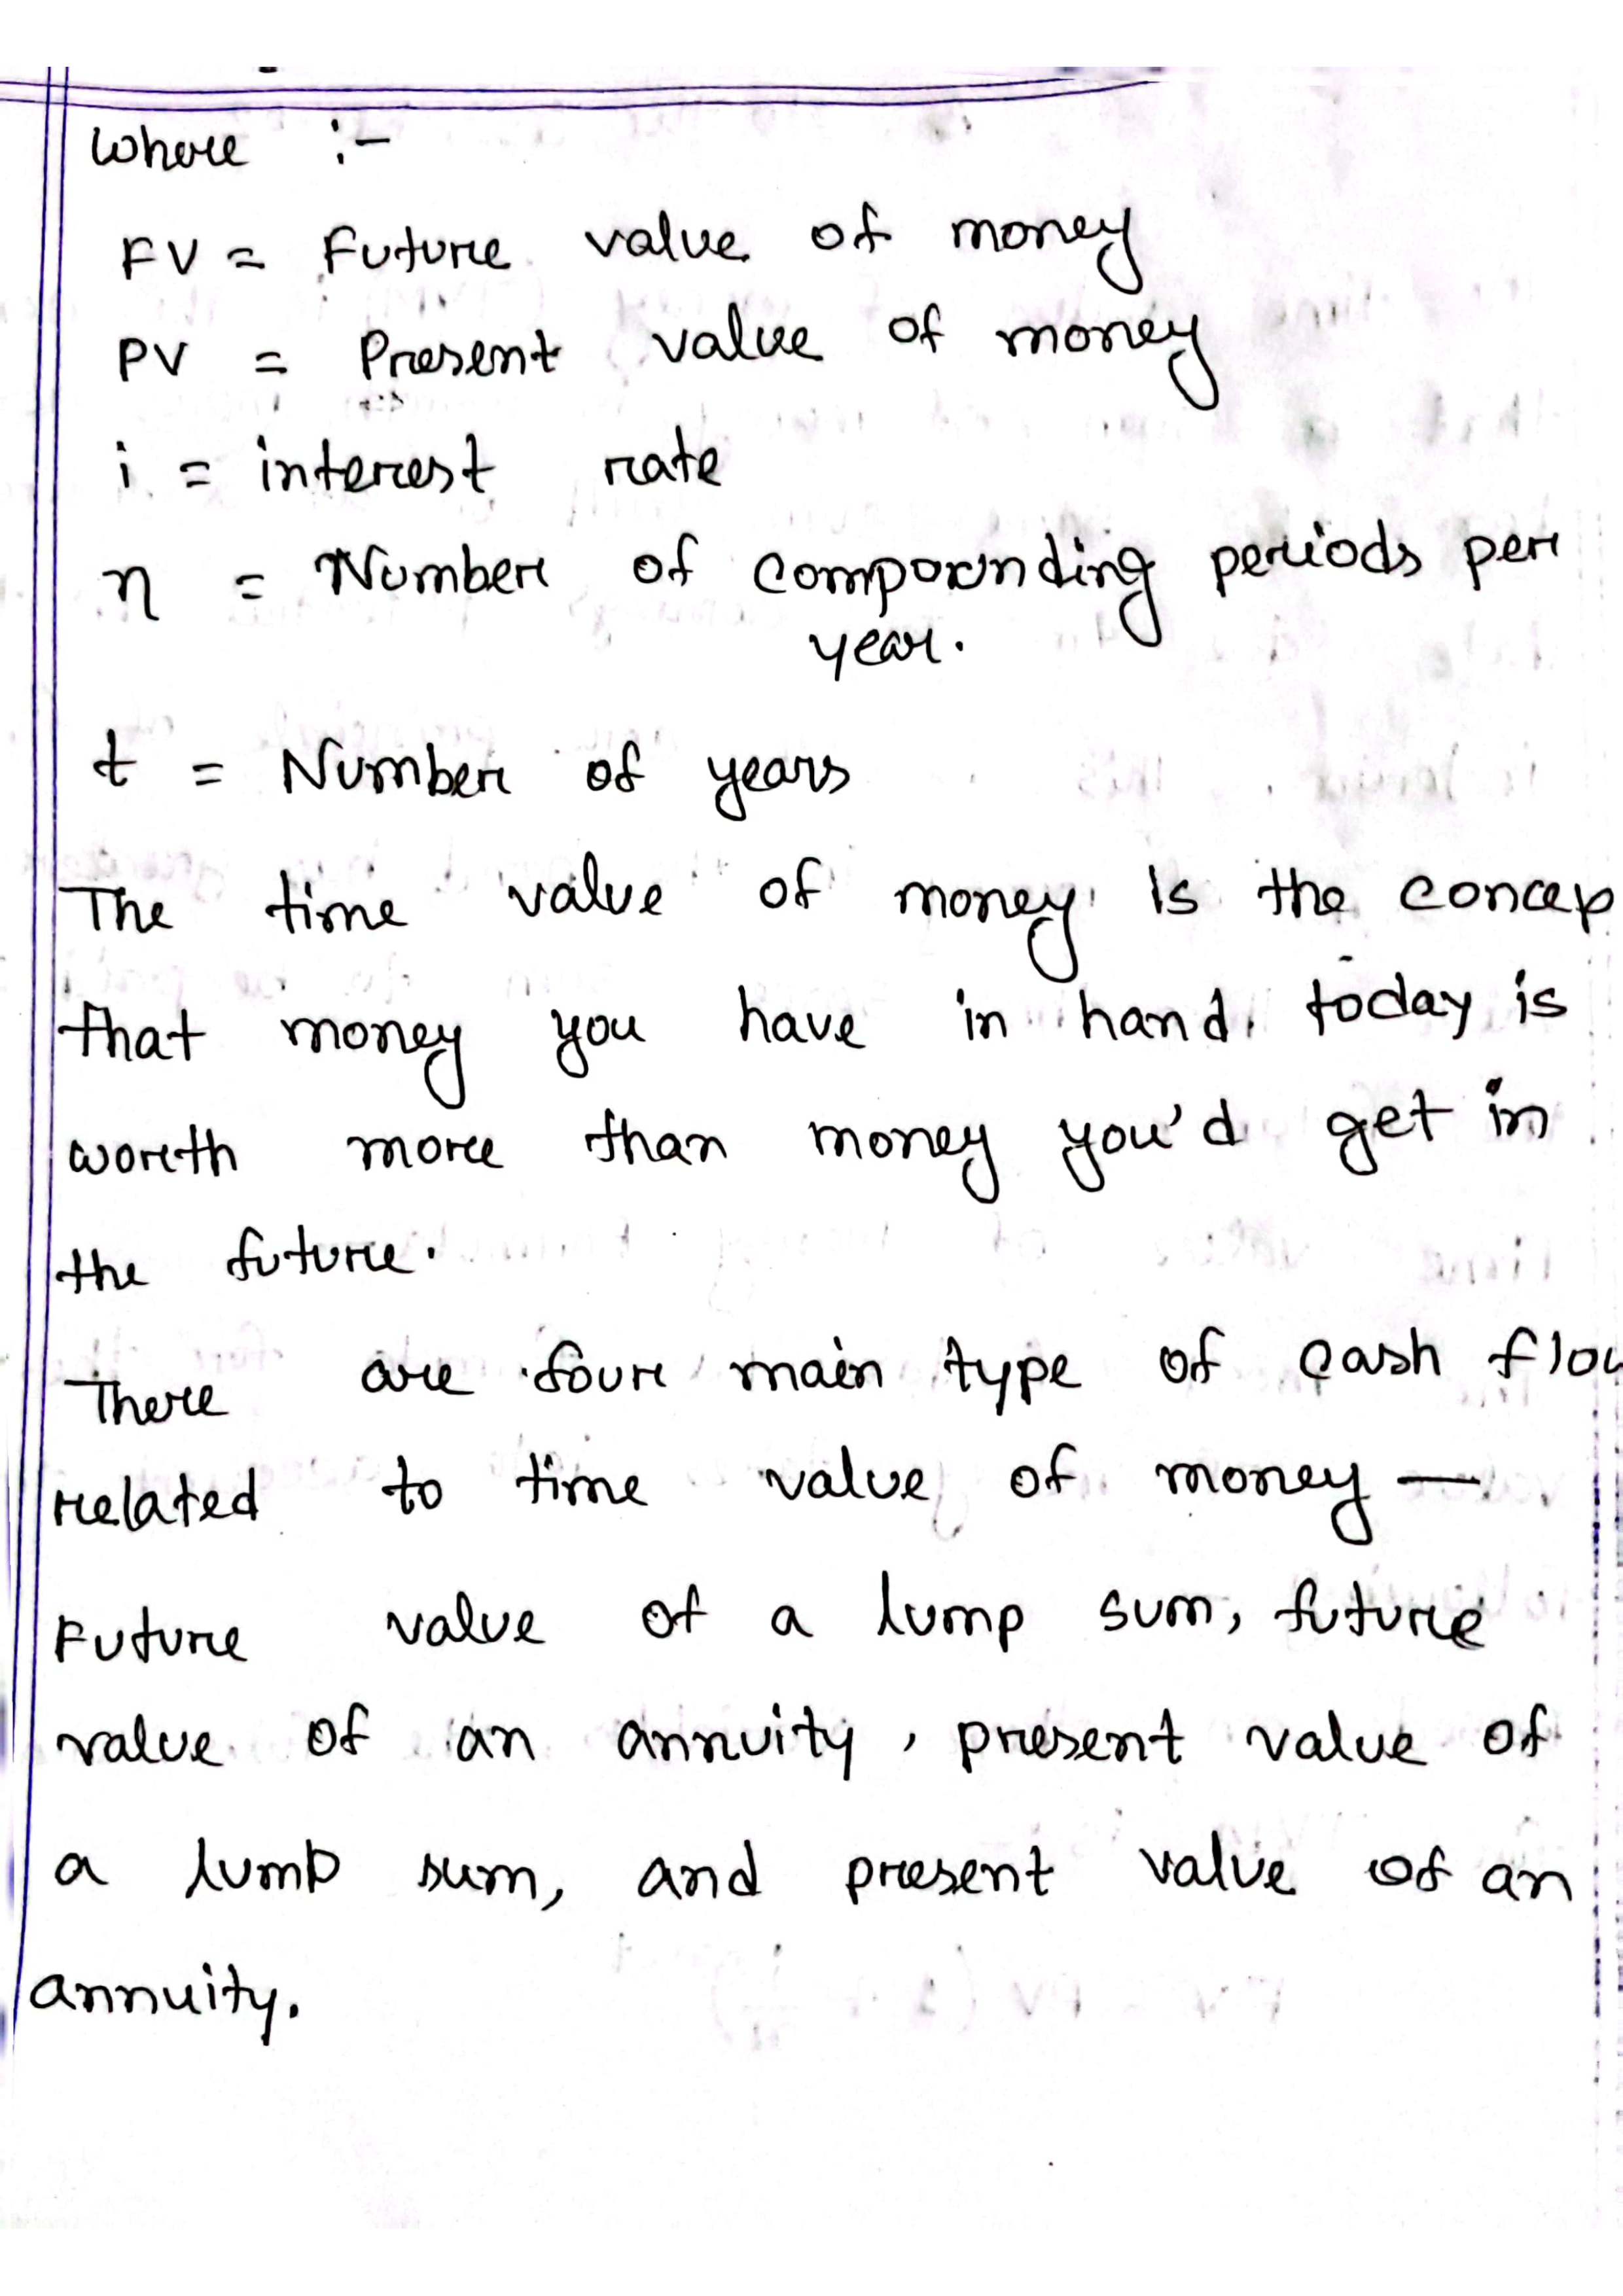 Where :-
FV = Future value of money
PV = Present value of money
i = interest rate
n = Number of compounding periods per
year.
t = Number of years
The time value of money is the concep
that money you have in hand today is
worth more than money you'd get in
the future.
There are four main type of cash flow
related to time value of money —
Future value of a lump sum, future
value of an annuity, present value of
a lump sum, and present value of an
annuity.